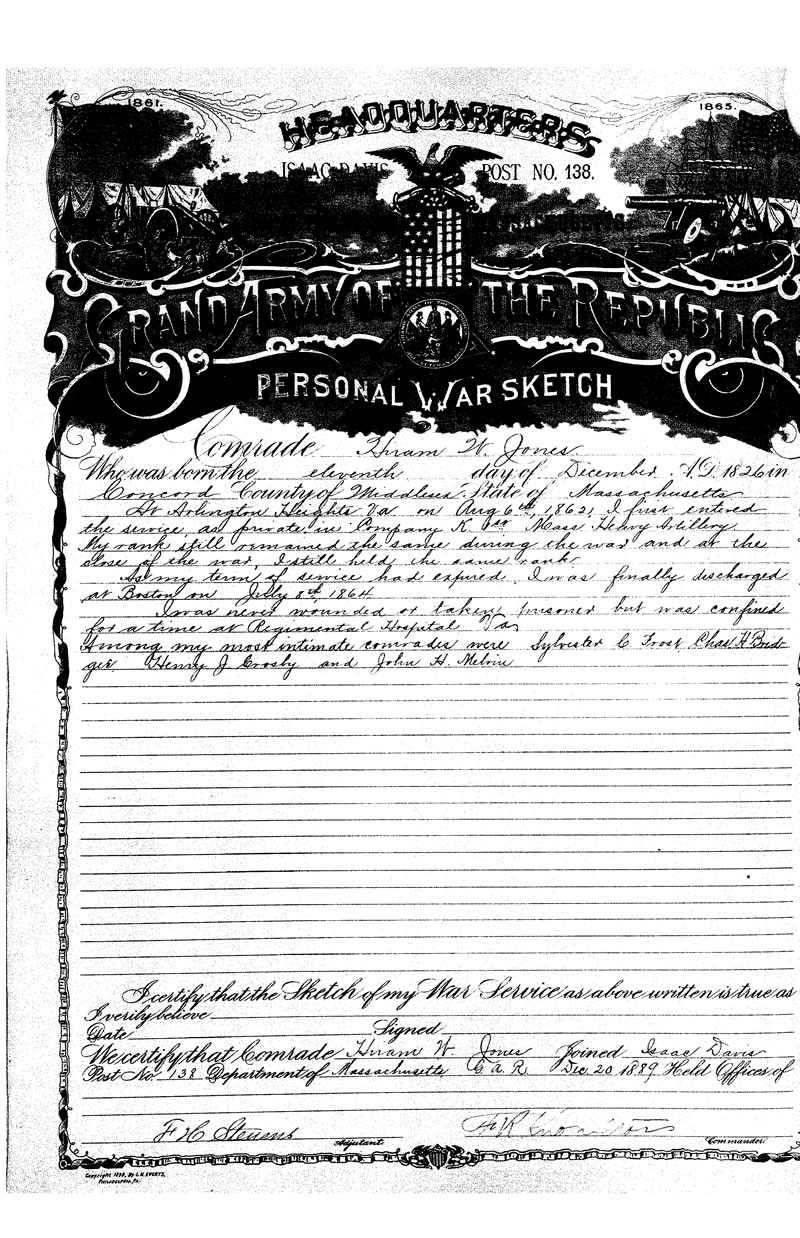 1861.
1865.
HEADQUARTERS
ISAAC DAVIS POST NO. 138.
MASSACHUSETTS
GRAND ARMY OF THE REPUBLIC
PERSONAL WAR SKETCH
Comrade Hiram W. Jones.
Who was born the eleventh day of December A.D. 1826 in
Concord County of Middlesex State of Massachusetts
At Arlington Heights Va on Aug 6th, 1862, I first entered
the service, as private in Company K. 1st Mass Heavy Artillery.
My rank still remained the same during the war and at the
close of the war, I still held the same rank
As my term of service had expired, I was finally discharged
at Boston on July 8th, 1864
I was never wounded or taken prisoner but was confined
for a time at Regimental Hospital Va
Among my most intimate comrades were Sylvester C Frost, Chas H Brid-
ges Henry J Crosby and John H. Melvin
I certify that the Sketch of my War Service as above written is true as
I verily believe
Date Signed
We certify that Comrade Hiram W. Jones Joined Isaac Davis
Post No. 138 Department of Massachusetts G. A. R. Dec. 20, 1889 Held Offices of
F H Stevens
Adjutant. Commander.
Copyright 1890, By L.H. EVERTS,
PHILADELPHIA, Pa.